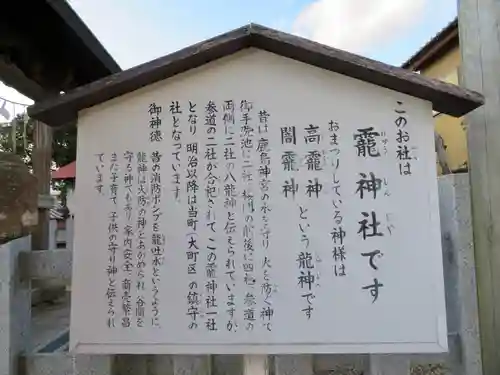 このお社は
龗神社です
いずう しん しゃ
おまつりしている神様は
高龗神
闇龗神
という龍神です
昔は鹿島神宮の水を守り火を防ぐ神で
御手洗池に二社、社の前後に四社、参道の
両側に二社の八龍神と伝えられていますが、
参道の二社が合祀されて、この龗神社一社
となり、明治以降は当町(大町区)の鎮守の
社となっています。
御神徳
昔の消防ポンプを龍吐水というように
龍神は火防の神とあがめられ、谷間を
守る神でもあり、家内安全、商売繁昌
また子育て、子供の守り神と伝えられ
ています。